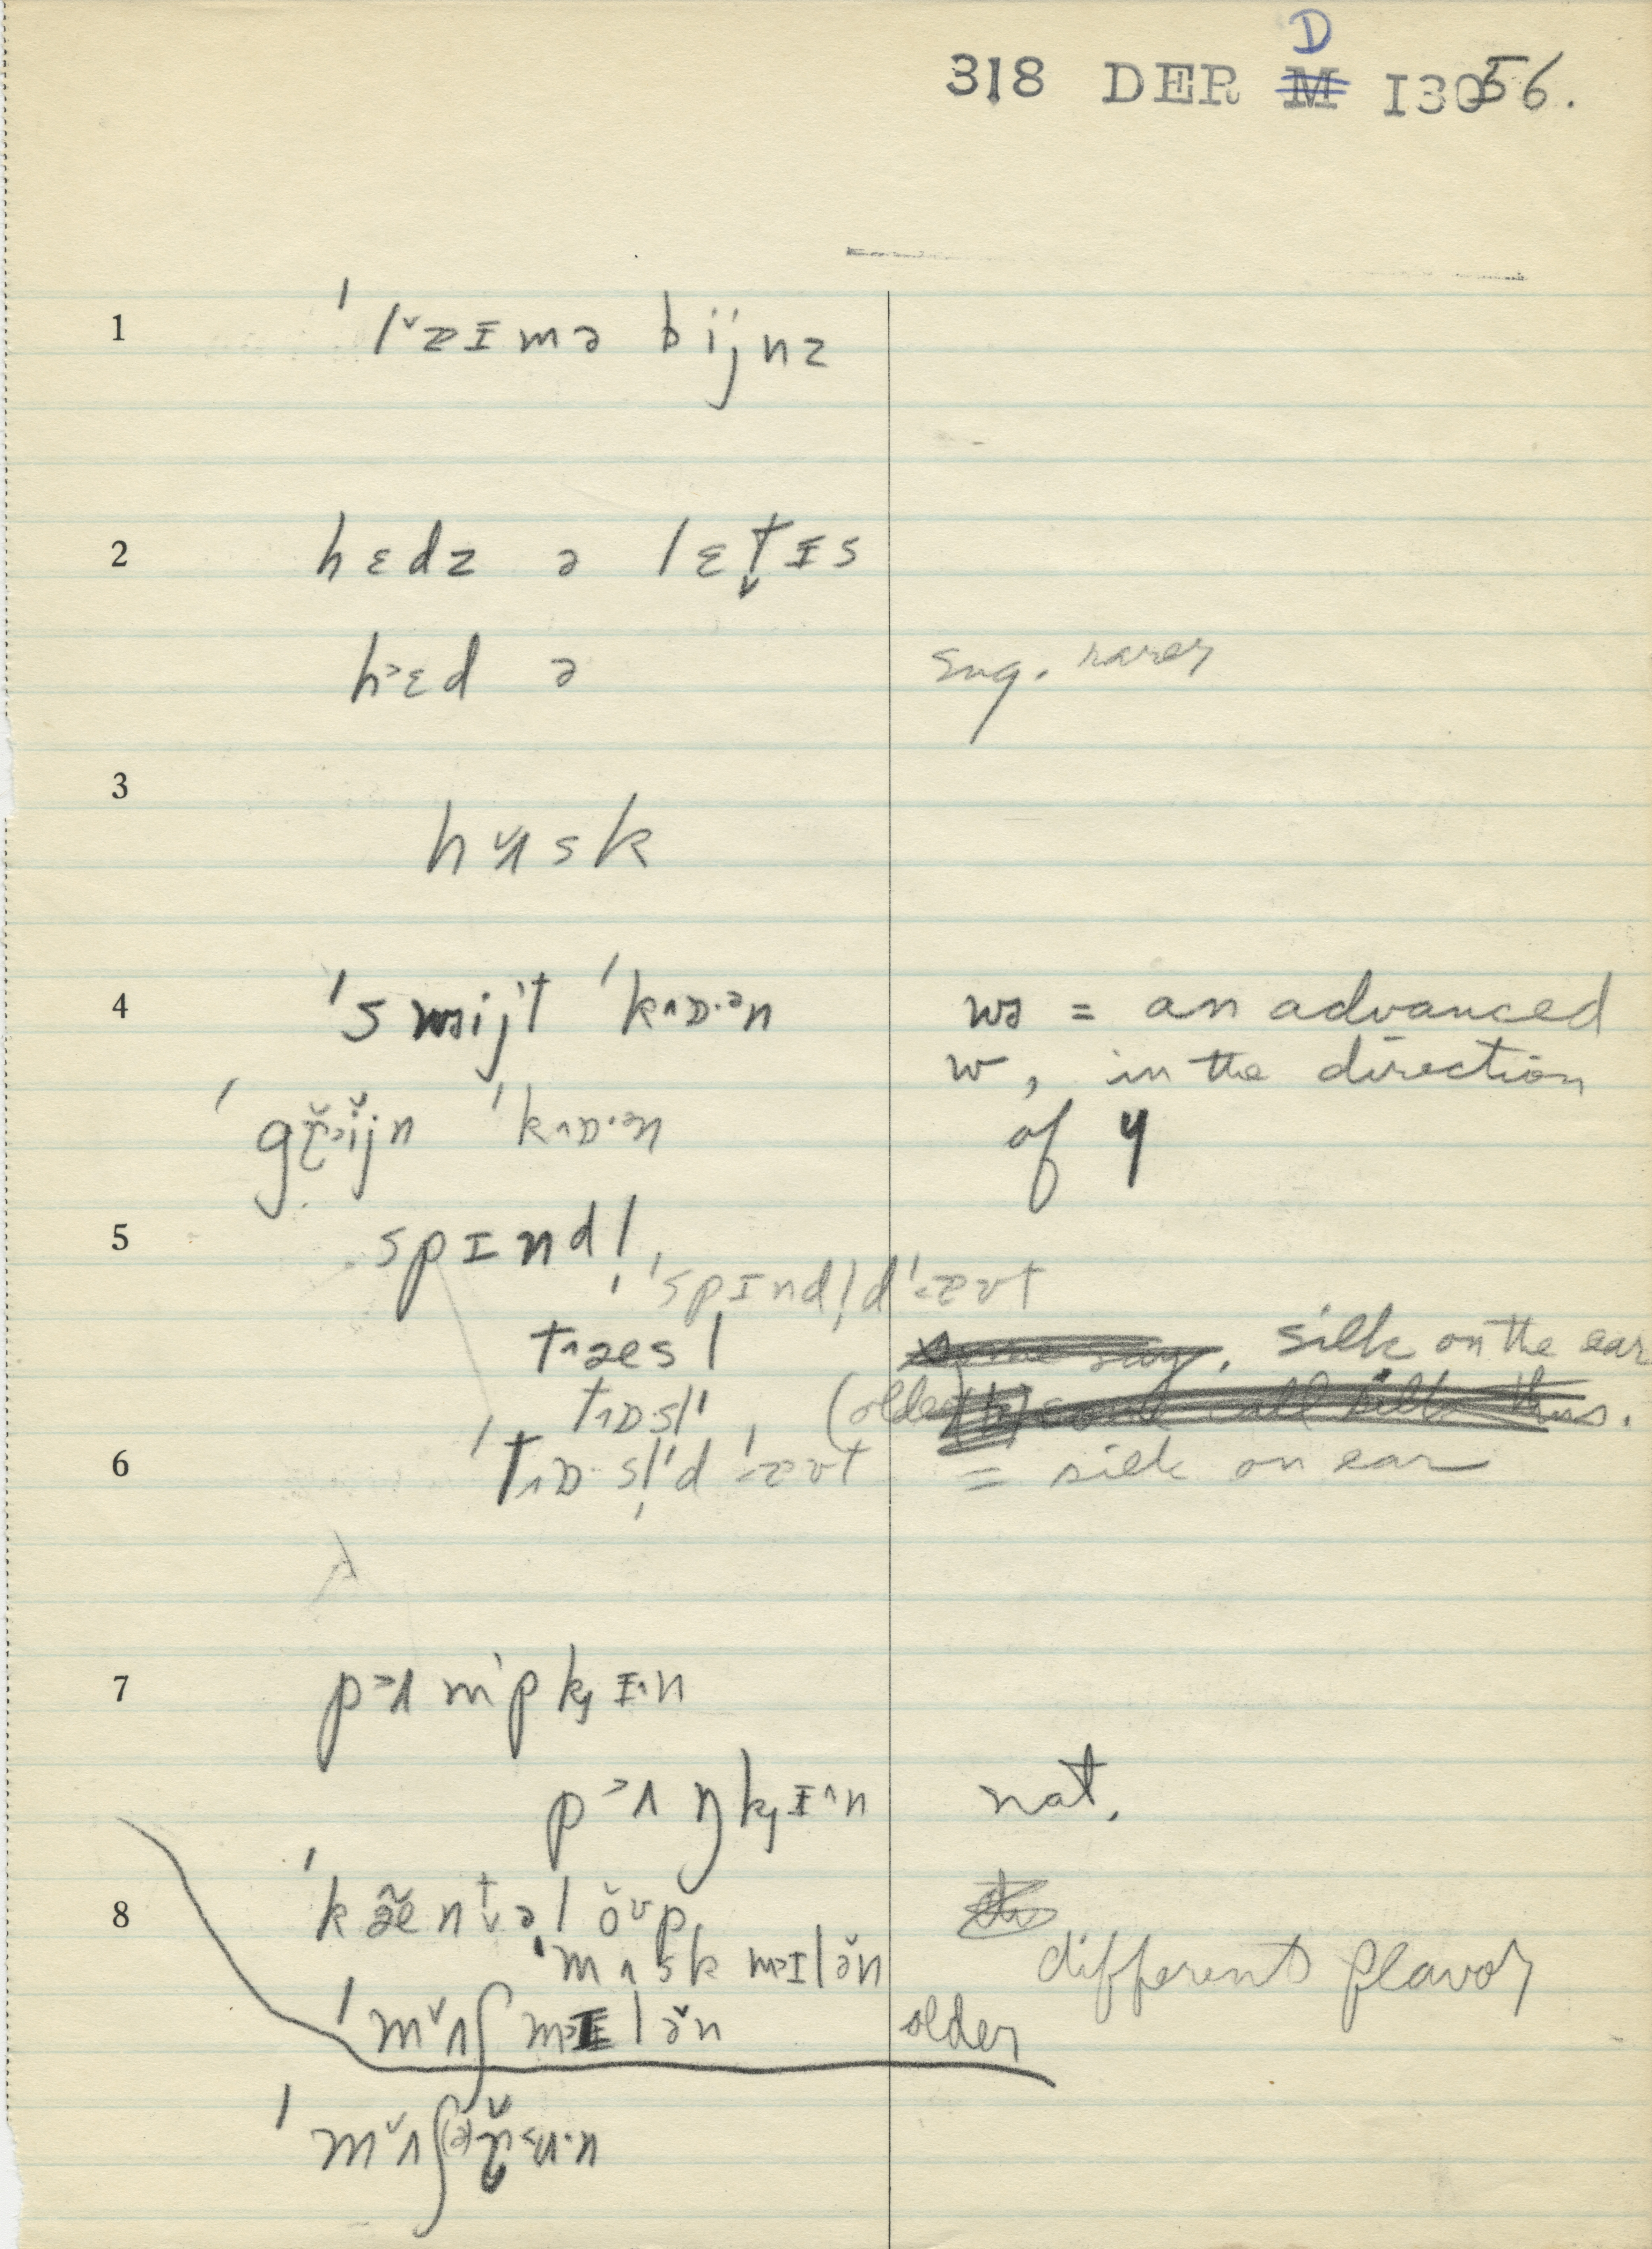 D
318 DER M I3056.
1 ˈlˇɐɪmə bijnz
2 hɛdz ə lɛt̬ɪs
h˃ɛd ə Eng. rarer
3 hʌ̌sk
4 ˈswɜijt ˈk˄ɒ·ən wɜ = an advanced
w, in the direction
ˈgɽ̌˃ǐjn ˈk˄ɒ·ən of ɥ
5 spɪndl̩
ˈspɪndl̩dˈɐʊt
t˄æsl silk on the ear
t˄ɒsl (older)
6 ˈt˄ɒ·sl̩dˈɐʊt = silk on ear
7 p˃ʌmpkɪ˄n
p˃ʌŋkɪ˄n nat.
8 ˈkæ̃nt̬əlǒʊp
ˈmʌsk m˃ɪlə̌n different flavor
ˈmˇʌʃ m˃ɪlə̌n older
ˈmˇʌʃ